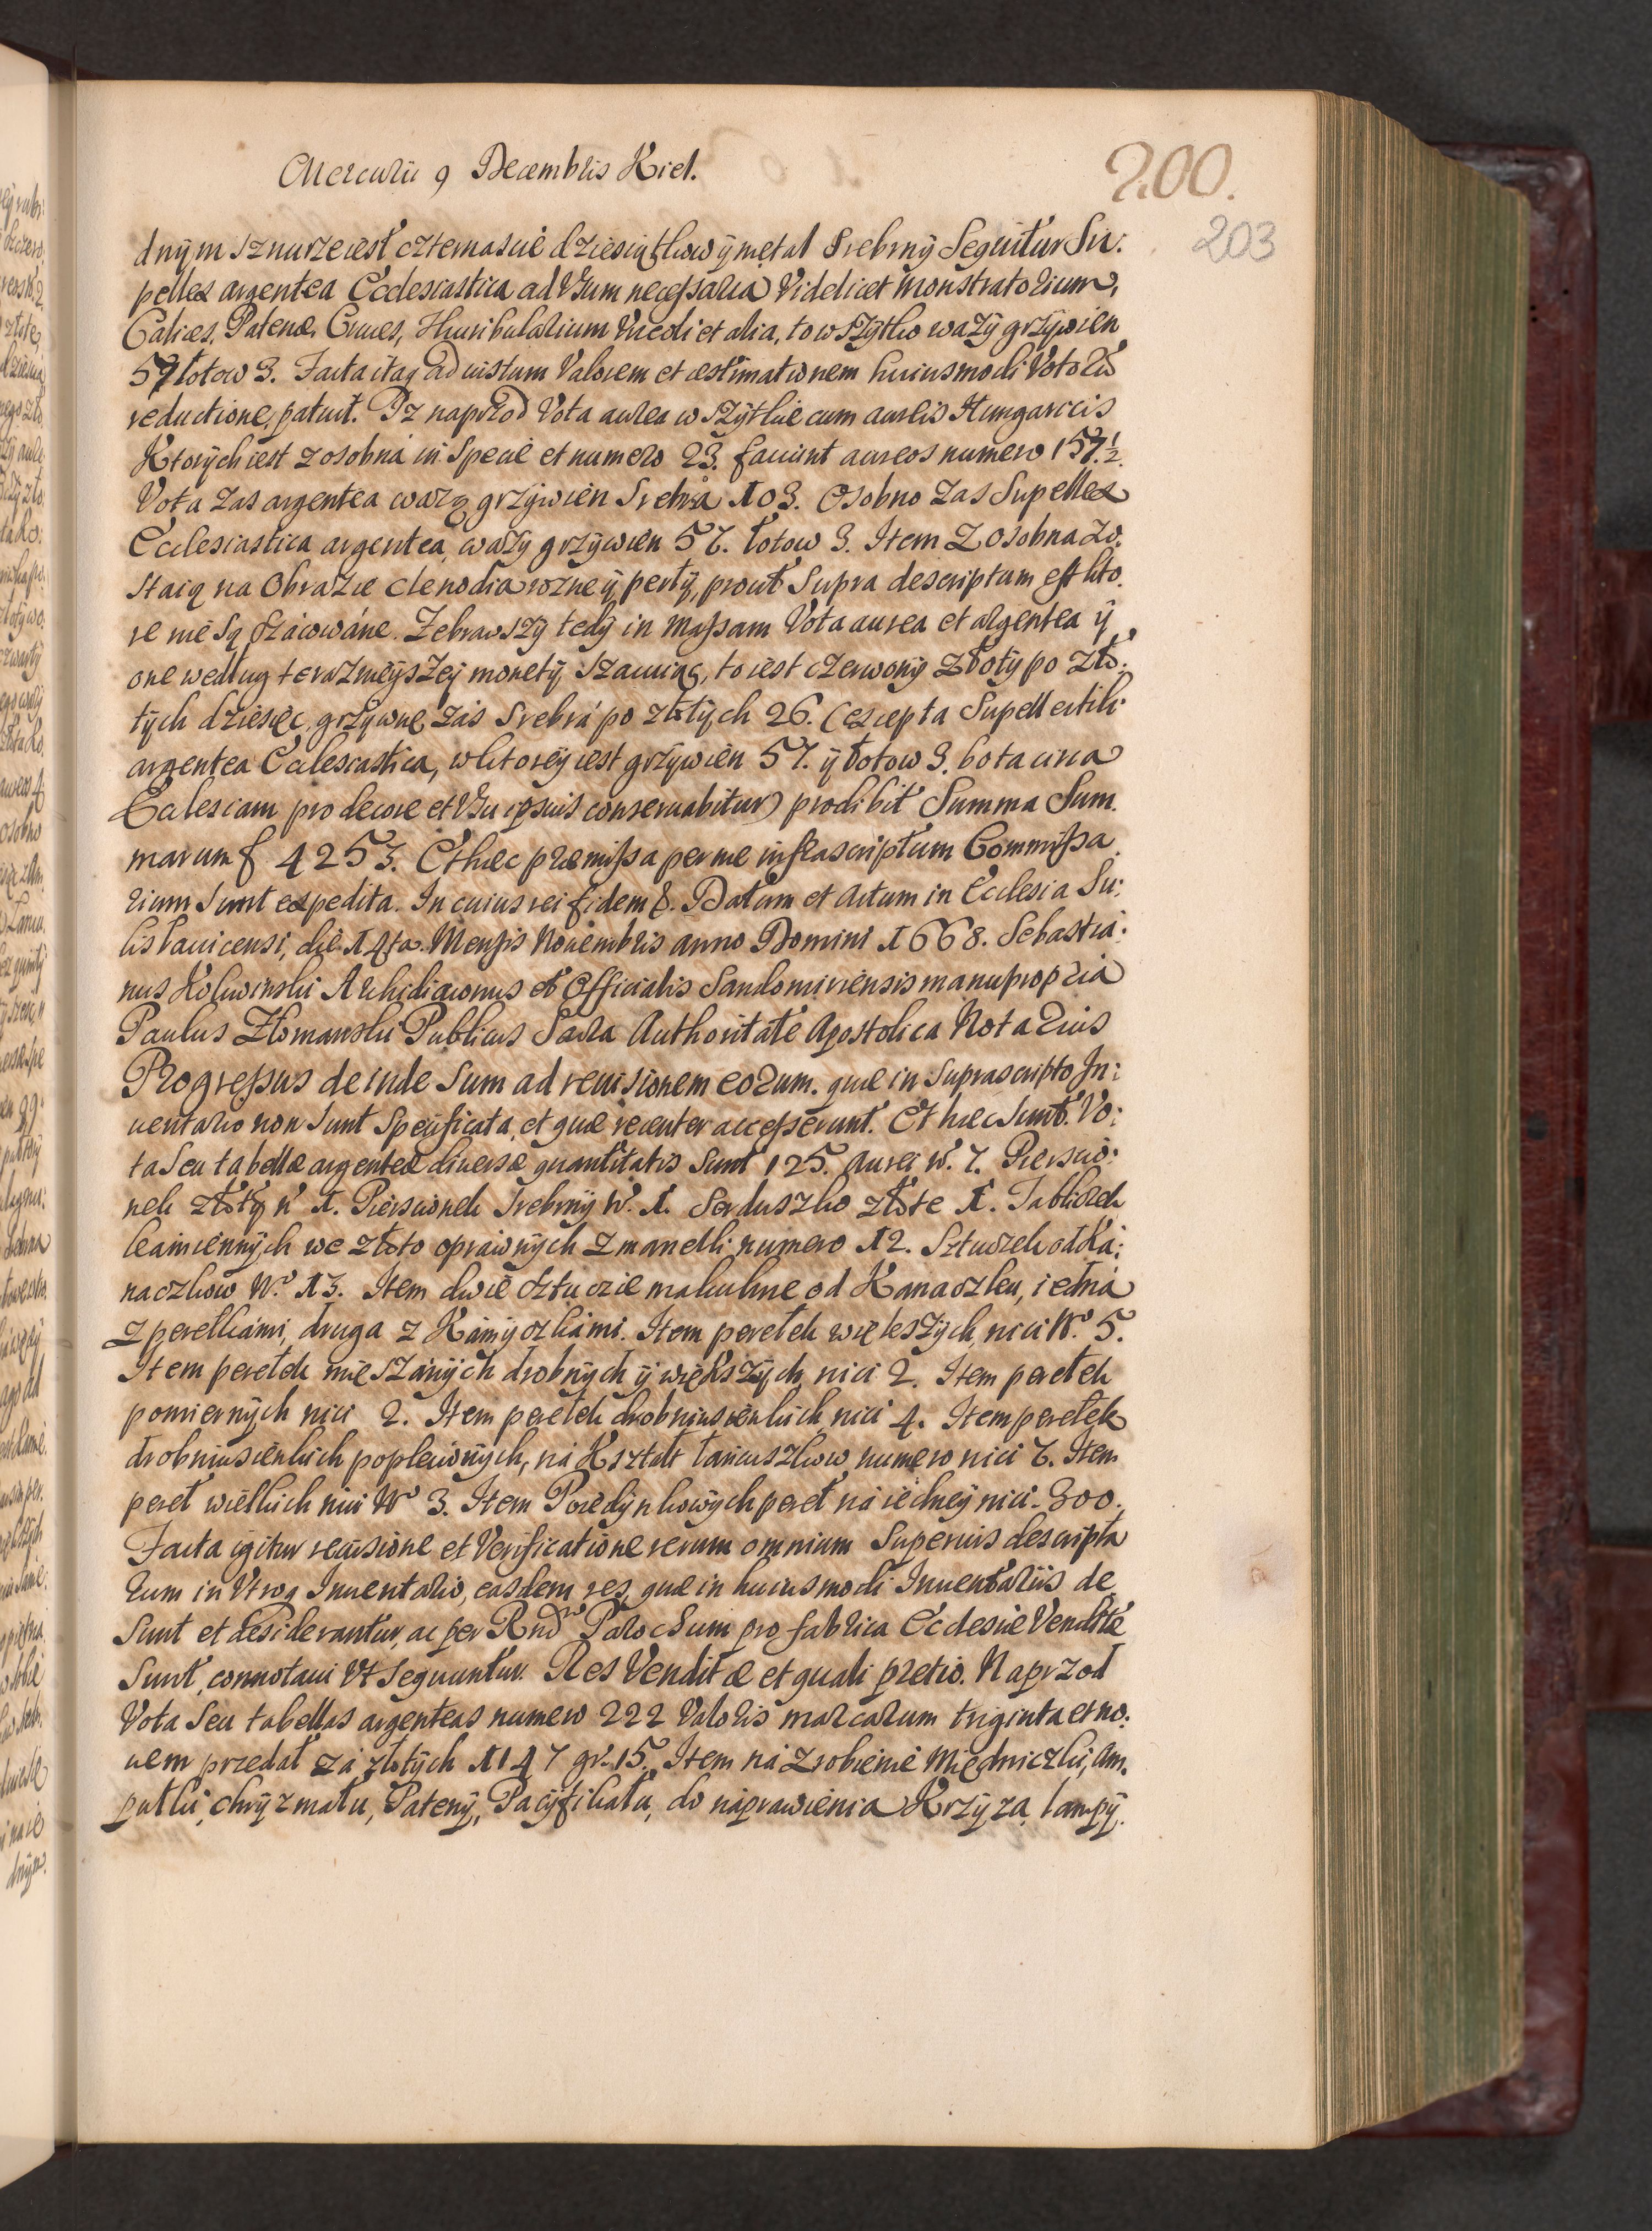 Mercurii 9 Decembris Kiel.
200.
203
dnym sznurze iest czternascie dziesiątkow ÿ metal Srebrnÿ Sequitur Su:
pellex argentea Ecclesiastica ad Vsum necessaria Videlicet Monstratorium,
Calices, Patenæ, Cruces, Thuribularium Vrceoli et alia, to wszÿtko wazÿ grzÿwien
57 łotow 3. Facta itaq ad iustum Valorem et æstimationem huiusmodi Votorū
reductione, patuit. Iz naprzod Vota aurea wszÿtkie cum aureis Hungaricis
Ktorÿch iest z osobna in Specie et numero 23. faciunt aureos numero 157.½.
Vota zas argentea wazą grzÿwien Srebra 103. Osobno zas Supellex
Ecclesiastica argentea, wazÿ grzÿwien 57. łotow 3. Item z osobna zo:
staią na Obrazie clenodia rozne ÿ perłÿ, prout Supra descriptum est kto:
re nie są szacowáne. Zebrawszÿ tedÿ in Massam Vota aurea et argentea ÿ
one według teraznieÿszeÿ monetÿ szacuiąc, to iest czerwonÿ złotÿ po zło:
tÿch dziesięc, grzÿwnę záś Srebrá po złotÿch 26. (excepta Supellectili
argentea Ecclesiastica, w ktoreÿ iest grzÿwien 57. ÿ łotow 3. bo ta circa
Ecclesiam pro decore et Vsu ipsius conseruabitur) prodibit Summa Sum.
marum f 4253. Et hæc præmissa per me infrascriptum Commissa.
rium Sunt expedita. In cuius rei fidem &. Datum et Actum in Ecclesia Su:
lisłauicensi, die 14ta. Mensis Nouembris anno Domini 1668. Sebastia:
nus Kokwinski Archidiaconus et Officialis Sandomiriensis manu propria
Paulus Złomanski Publicus Sacra Authoritate Apostolica Notarius
Progressus deinde Sum ad reuisionem eorum. quæ in Suprascripto In:
uentario non Sunt Specificata, et quæ recenter accesserunt. Et hæc Sunt. Vo:
ta Seu tabellæ argenteæ diuersæ quantitatis Sunt 125. Aurei N. 7. Piersció:
nek złotÿ N 1. Pierscionek Srebrnÿ N. 1. Serduszko złote 1. Tabliczek
kamiennÿch we złoto opráwnÿch z manelki numero 12. Sztuczek od Ka:
naczkow No 13. Item dwie sztuczce malutkne od Kanaczku, iedná
z perełkámi, druga z Kámÿczkámi. Item perełek większÿch, nici No. 5.
Item perełek mieszánÿch drobnÿch ÿ większÿch nici 2. Item perełek
pomiernÿch nici 2. Item perełek drobniusienkich nici 4. Item perełek
drobniusienkich poplecionÿch, ná Kształt łancuszkow numero nici 7. Item
pereł wielkich nici No 3. Item Poiedÿnkowÿch pereł ná iedneÿ nici. 300.
Facta igitur reuisione et Verificatione rerum omnium Superius descripta
rum in Vtroq Inuentario, easdem res, quæ in huiusmodi Inuentariis de
Sunt et desiderantur, ac per Rndū Parochum pro fabrica Ecclesiæ Venditæ
Sunt, connotaui Vt Sequuntur. Res Venditæ et quali pretio. Naprzod
Vota Seu tabellas argenteas numero 222 Valoris marcarum triginta et no:
uem przedał zá złotÿch 1147 gr. 15. Item ná zrobienie Miedniczki, Am.
pułki, chrÿzmału, Patenÿ, Pacÿfikału, do náprawienia Krzÿza, lampÿ.